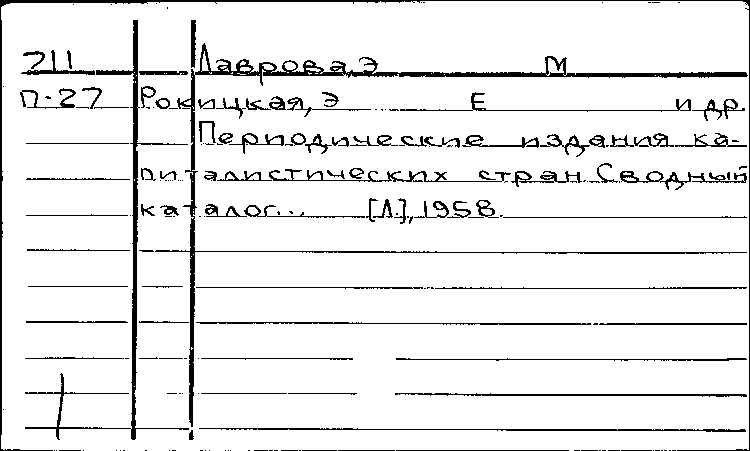 211 Лаврова, Э М
П-27 Рокицкая, Э Е и др.
Периодические издания ка-
питалистических стран Сводный
каталог... [Л.], 1958.